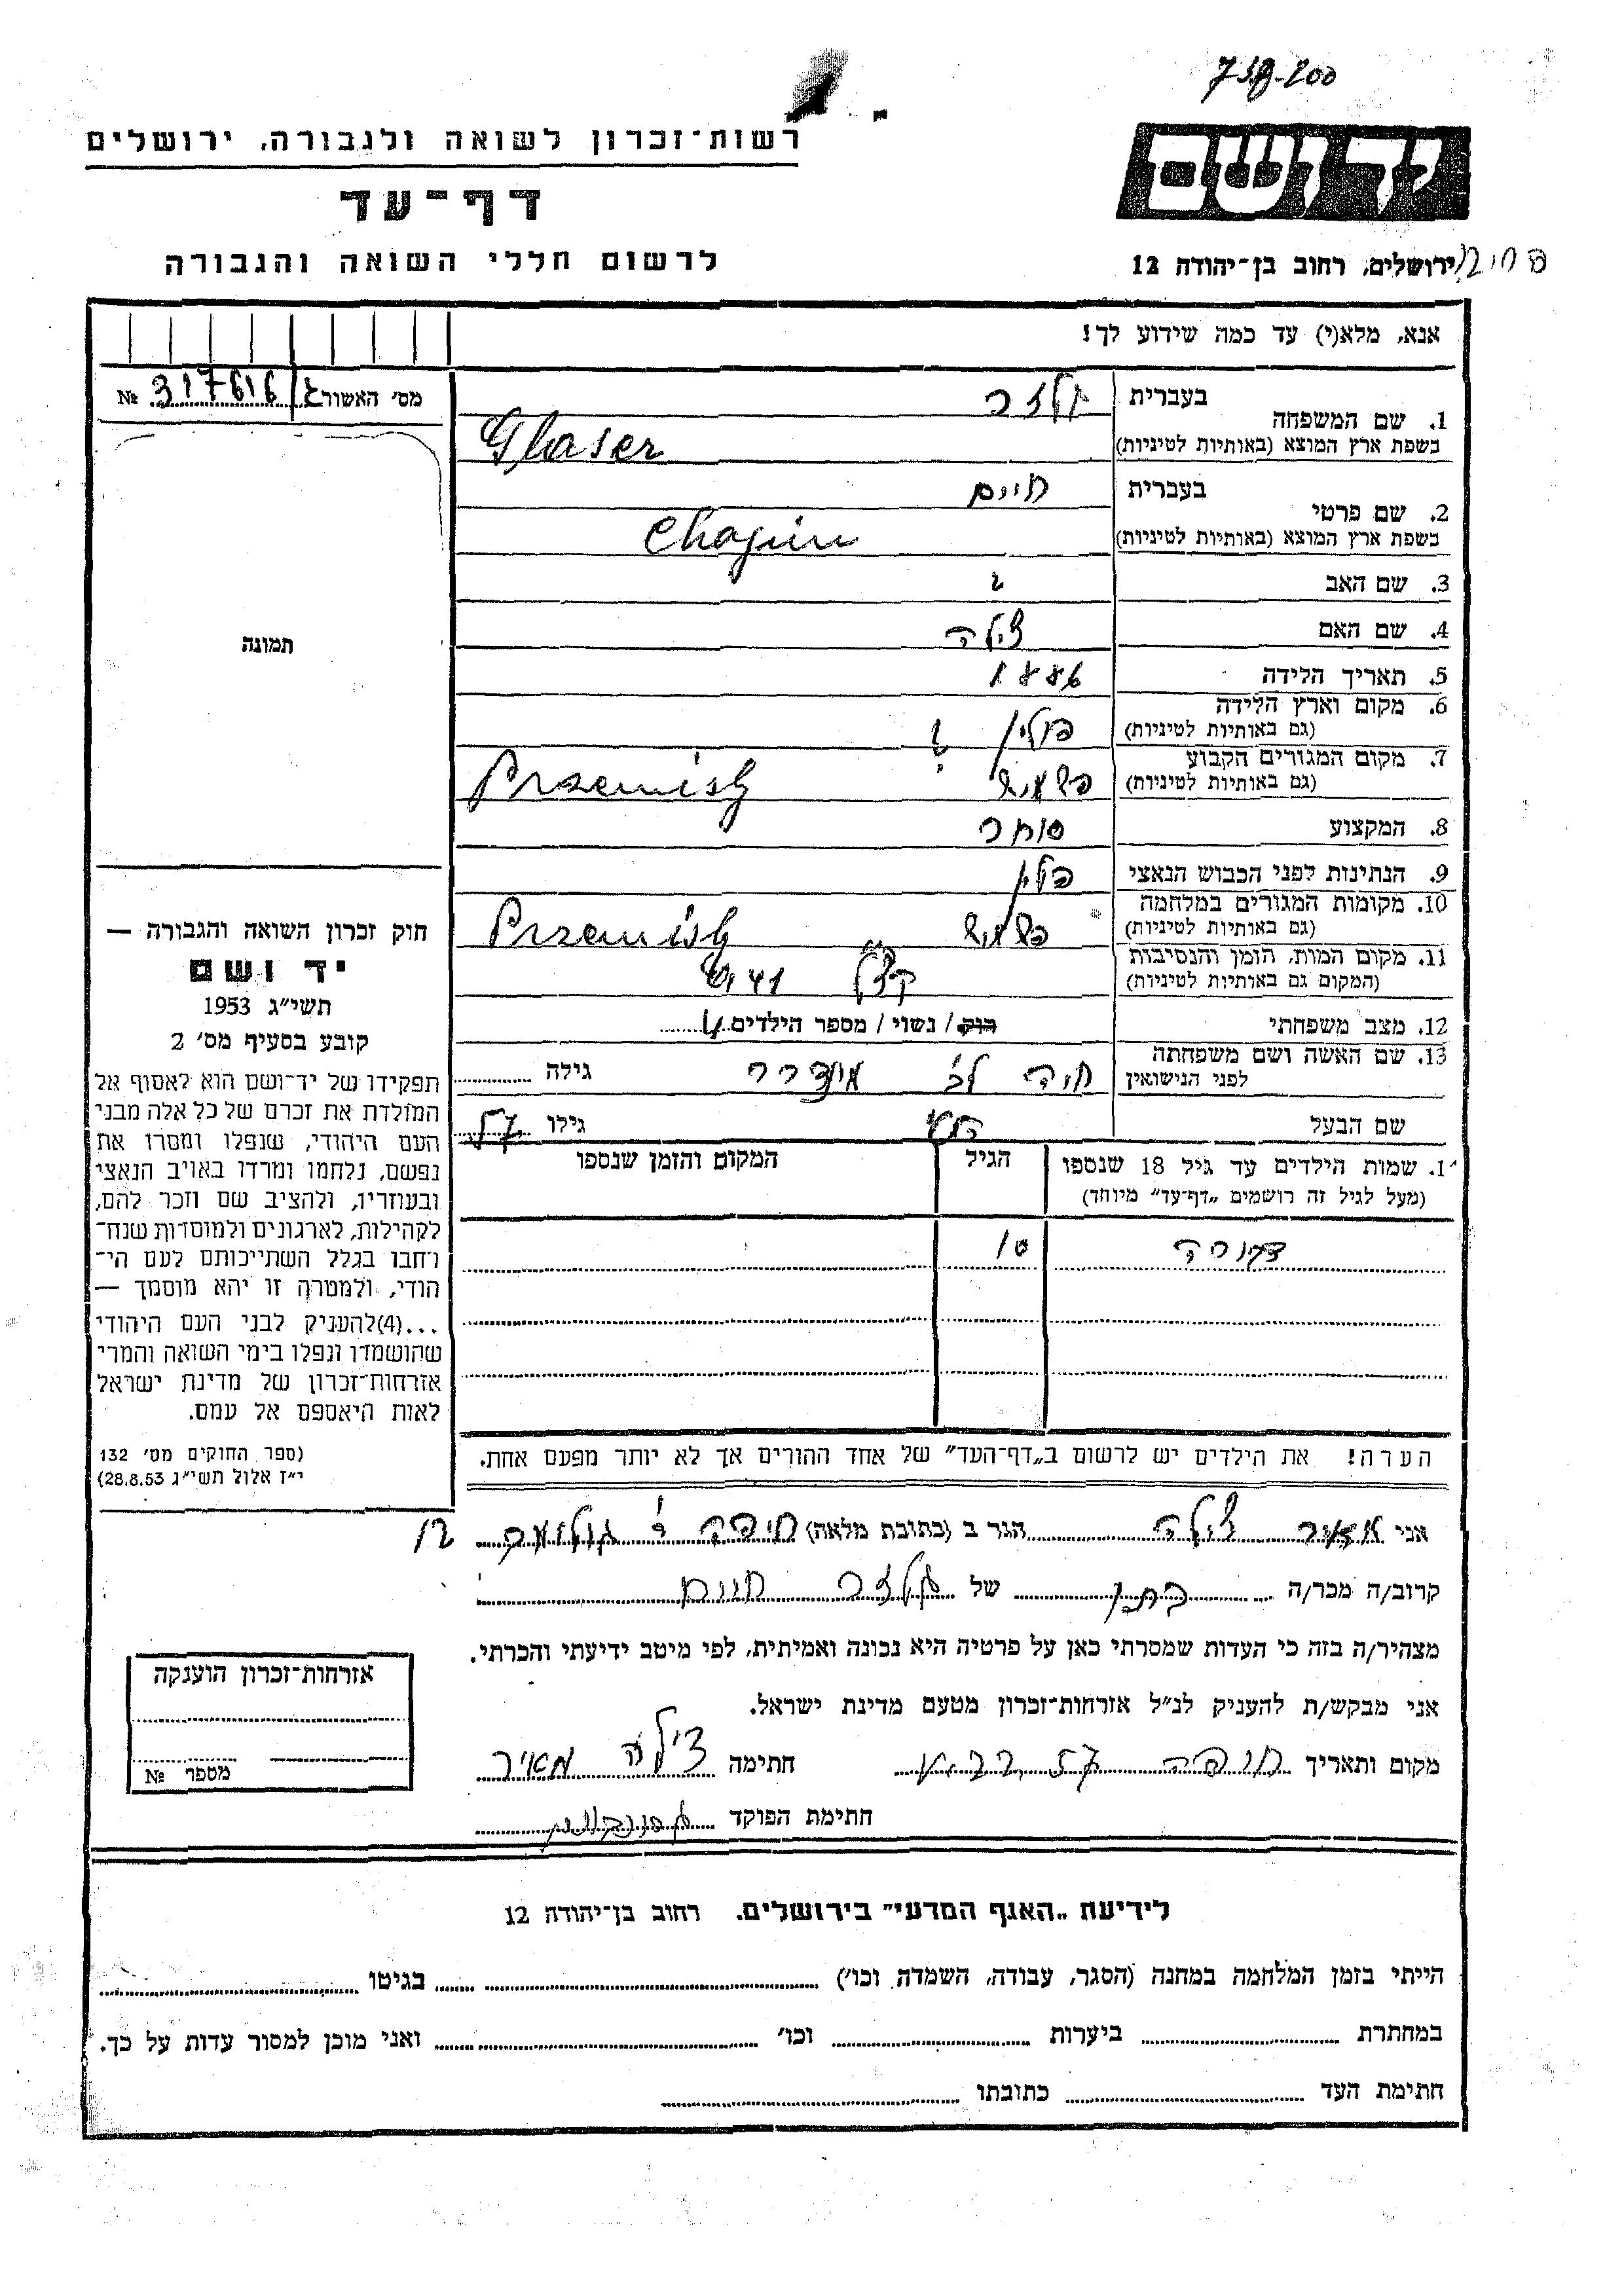 738-200
רשות־זכרון לשואה ולגבורה, ירושלים
דף־עד
לרשום חללי השואה והגבורה
ידושם
ירושלים, רחוב בן־יהודה 12
אנא, מלא(י) עד כמה שידוע לך!
מס׳ האשור 317616 №
1. שם המשפחה בעברית גלזר
בשפת ארץ המוצא (באותיות לטיניות) Glaser
2. שם פרטי בעברית חיים
בשפת ארץ המוצא (באותיות לטיניות) Chajim
3. שם האב
4. שם האם צילה
5. תאריך הלידה 1886
6. מקום וארץ הלידה (גם באותיות לטיניות) פולין ?
7. מקום המגורים הקבוע (גם באותיות לטיניות) פשמישל Przemisly
8. המקצוע סוחר
9. הנתינות לפני הכבוש הנאצי פולין
10. מקומות המגורים במלחמה (גם באותיות לטיניות) פשמישל Przemisly
11. מקום המות, הזמן והנסיבות (המקום גם באותיות לטיניות)
12. מצב משפחתי רווק / נשוי / מספר הילדים 4
13. שם האשה ושם משפחתה לפני הנישואין חיה גילה
שם הבעל גילו
1. שמות הילדים עד גיל 18 שנספו הגיל המקום והזמן שנספו
(מעל לגיל זה רושמים „דף־עד״ מיוחד)
דבורה 10
הערה! את הילדים יש לרשום ב„דף־העד״ של אחד ההורים אך לא יותר מפעם אחת.
תמונה
חוק זכרון השואה והגבורה —
יד ושם
תשי״ג 1953
קובע בסעיף מס׳ 2
תפקידו של יד־ושם הוא לאסוף אל
המולדת את זכרם של כל אלה מבני
העם היהודי, שנפלו ומסרו את
נפשם, נלחמו ומרדו באויב הנאצי
ובעוזריו, ולהציב שם וזכר להם,
לקהילות, לארגונים ולמוסדות שנח־
רחבו בגלל השתייכותם לעם הי־
הודי, ולמטרה זו יהא מוסמך —
...(4) להעניק לבני העם היהודי
שהושמדו ונפלו בימי השואה והמרי
אזרחות־זכרון של מדינת ישראל
לאות היאספם אל עמם.
(ספר החוקים מס׳ 132
י״ז אלול תשי״ג 28.8.53)
אני מאיר צילה הגר ב (כתובת מלאה) חיפה
קרוב/ה מכר/ה של גלזר חיים
מצהיר/ה בזה כי העדות שמסרתי כאן על פרטיה היא נכונה ואמיתית, לפי מיטב ידיעתי והכרתי.
אני מבקש/ת להעניק לנ״ל אזרחות־זכרון מטעם מדינת ישראל.
מקום ותאריך חיפה חתימה צילה מאיר
חתימת הפוקד
אזרחות־זכרון הוענקה
מספר №
לידיעת „האגף המדעי״ בירושלים, רחוב בן־יהודה 12
הייתי בזמן המלחמה במחנה (הסגר, עבודה, השמדה וכו׳) בגיטו
במחתרת ביערות וכו׳ ואני מוכן למסור עדות על כך.
חתימת העד כתובתו